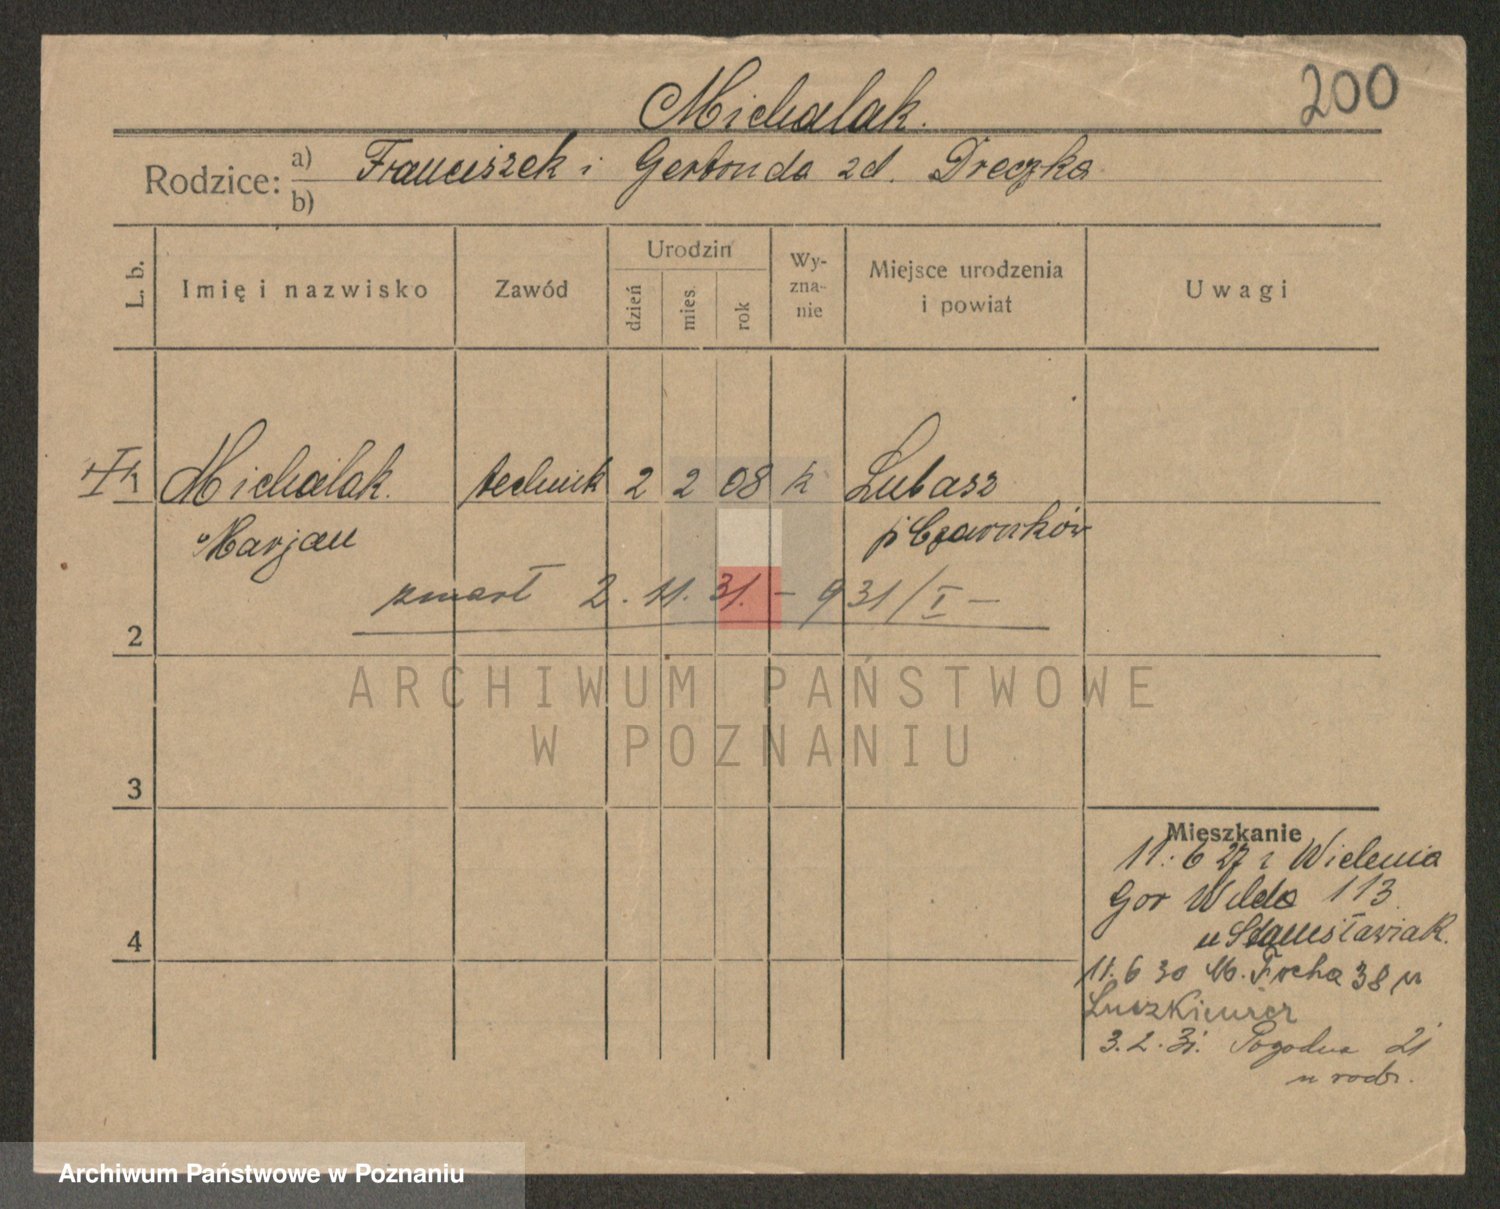 200
Michalak.
Rodzice: a) Franciszek i Gertruda zd. Dreczka
b)
L. b. Imię i nazwisko Zawód Urodzin dzień mies. rok Wy-zna-nie Miejsce urodzenia i powiat Uwagi
Michalak technik 2 2 08 k Lubasz
Marjan p Czarnków
zmarł 2. 11. 31. – 931/I –
2
3
4
Mieszkanie
11. 6 27 z Wielenia
Gór Wilda 113
u Stanisławiak.
11. 6 30 M. Focha 38 u
3. 2. 31. Pogodna 21
u rodz.
ARCHIWUM PAŃSTWOWE
W POZNANIU
Archiwum Państwowe w Poznaniu